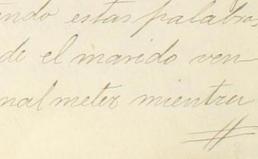 endo estas palabras,
de el marido ven
nal meter mientra